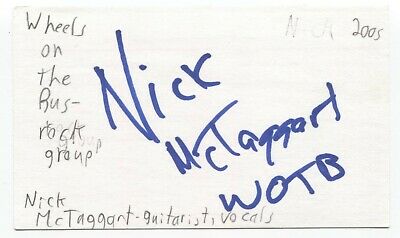 Wheels
on
the
Bus-
rock
group
Nick
McTaggart
WOTB
2005
Nick
McTaggart-guitarist, vocals